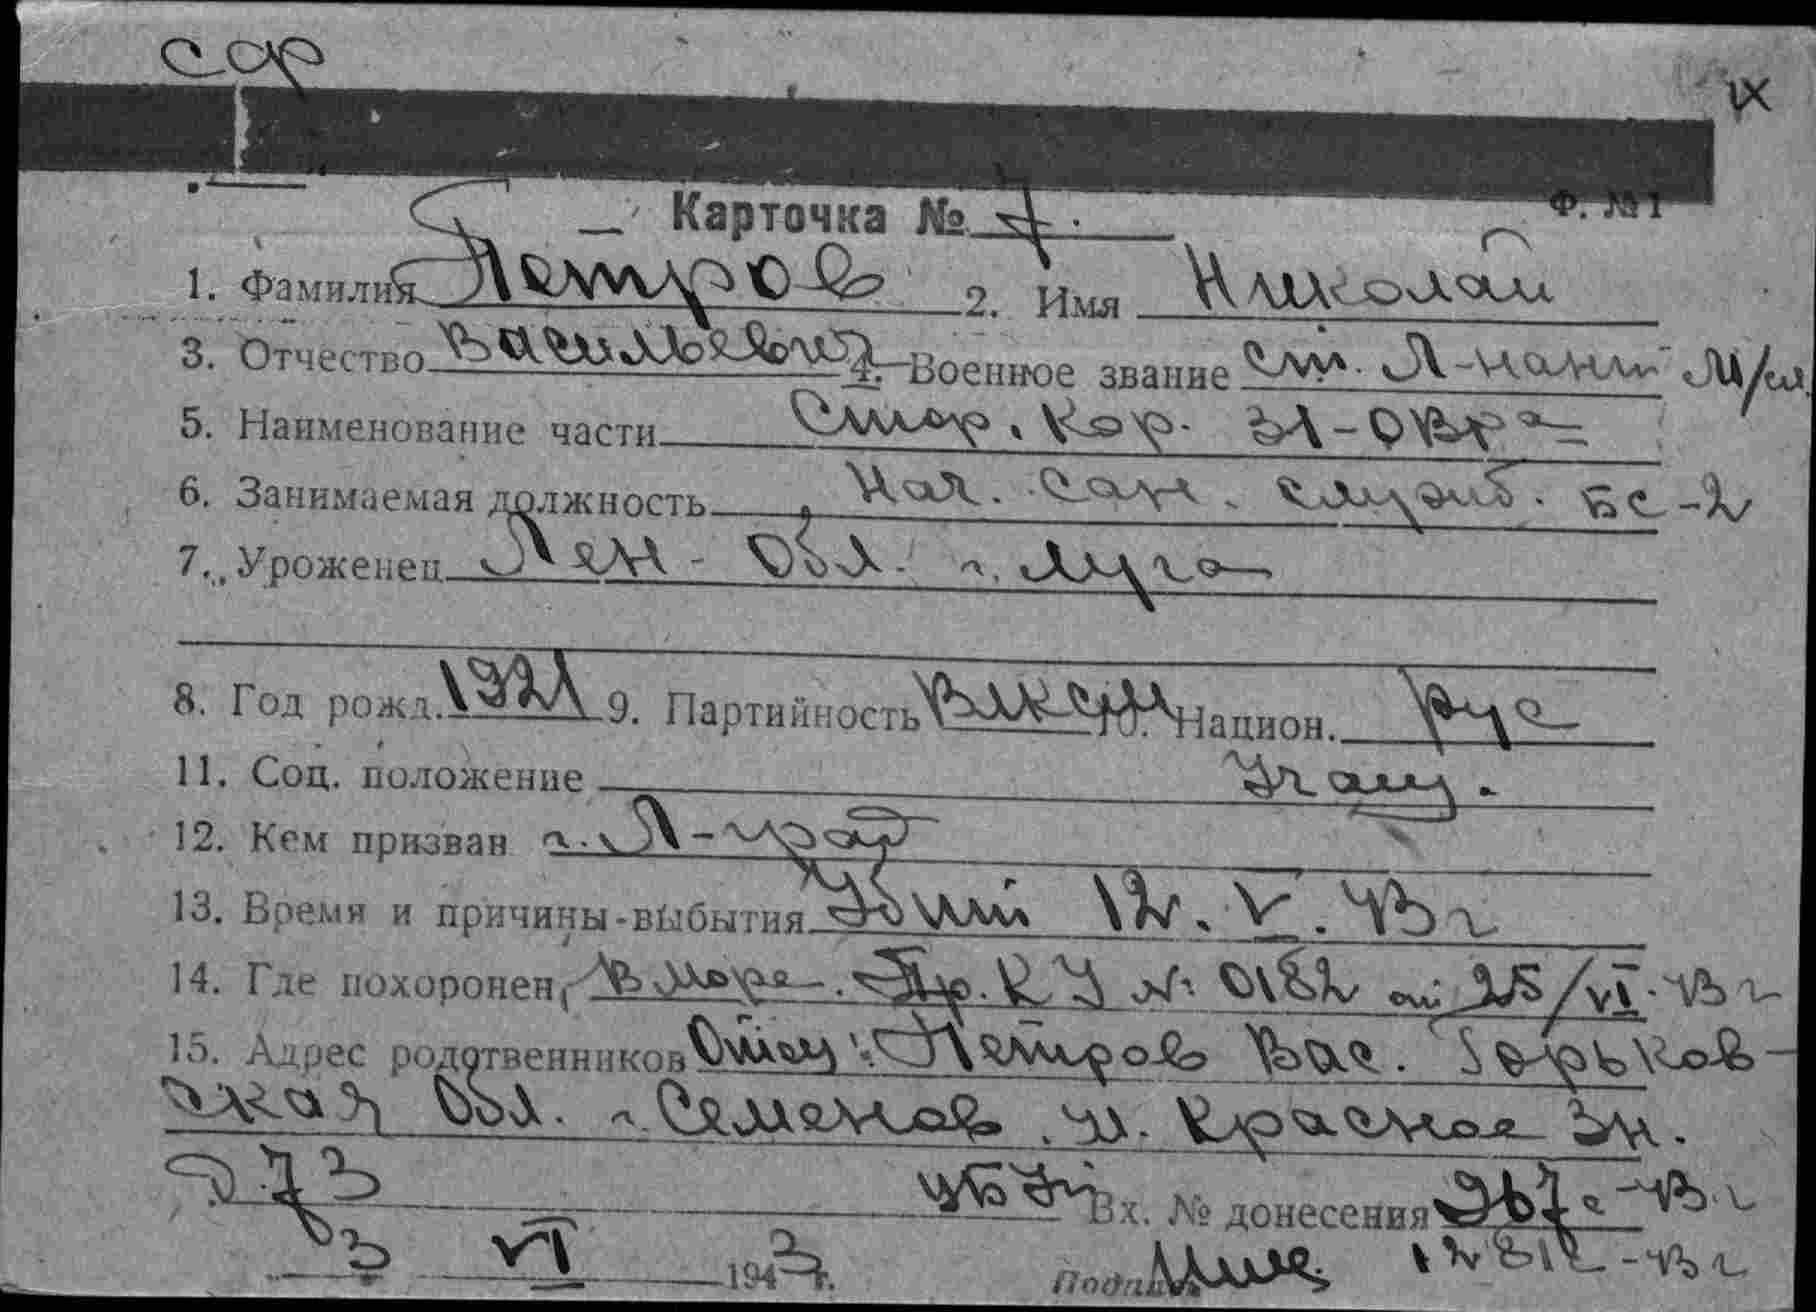 сдр
IX
Карточка № 7.
Ф. № 1
1. Фамилия Петров 2. Имя Николай
3. Отчество Васильевич 4. Военное звание ст. Л-нант М/сл.
5. Наименование части Стор. Кор. 31-ОВРа
6. Занимаемая должность Нач. Сан. служб. БС-2
7. Уроженец Лен-Обл. г. Луга
8. Год рожд. 1921 9. Партийность ВЛКСМ 10. Национ. рус
11. Соц. положение Учащ.
12. Кем призван г. Л-град
13. Время и причины выбытия Убит 12. V. 43 г
14. Где похоронен В море. Пр. К У № 0182 от 25/VI. 43 г
15. Адрес родственников Отец: Петров Вас. Горьков-
ская Обл. г. Семенов, ул. Красное Зн.
д. 73
Вх. № донесения 967с-43 г
3 VI 1943 г. Подпись 1281с-43 г